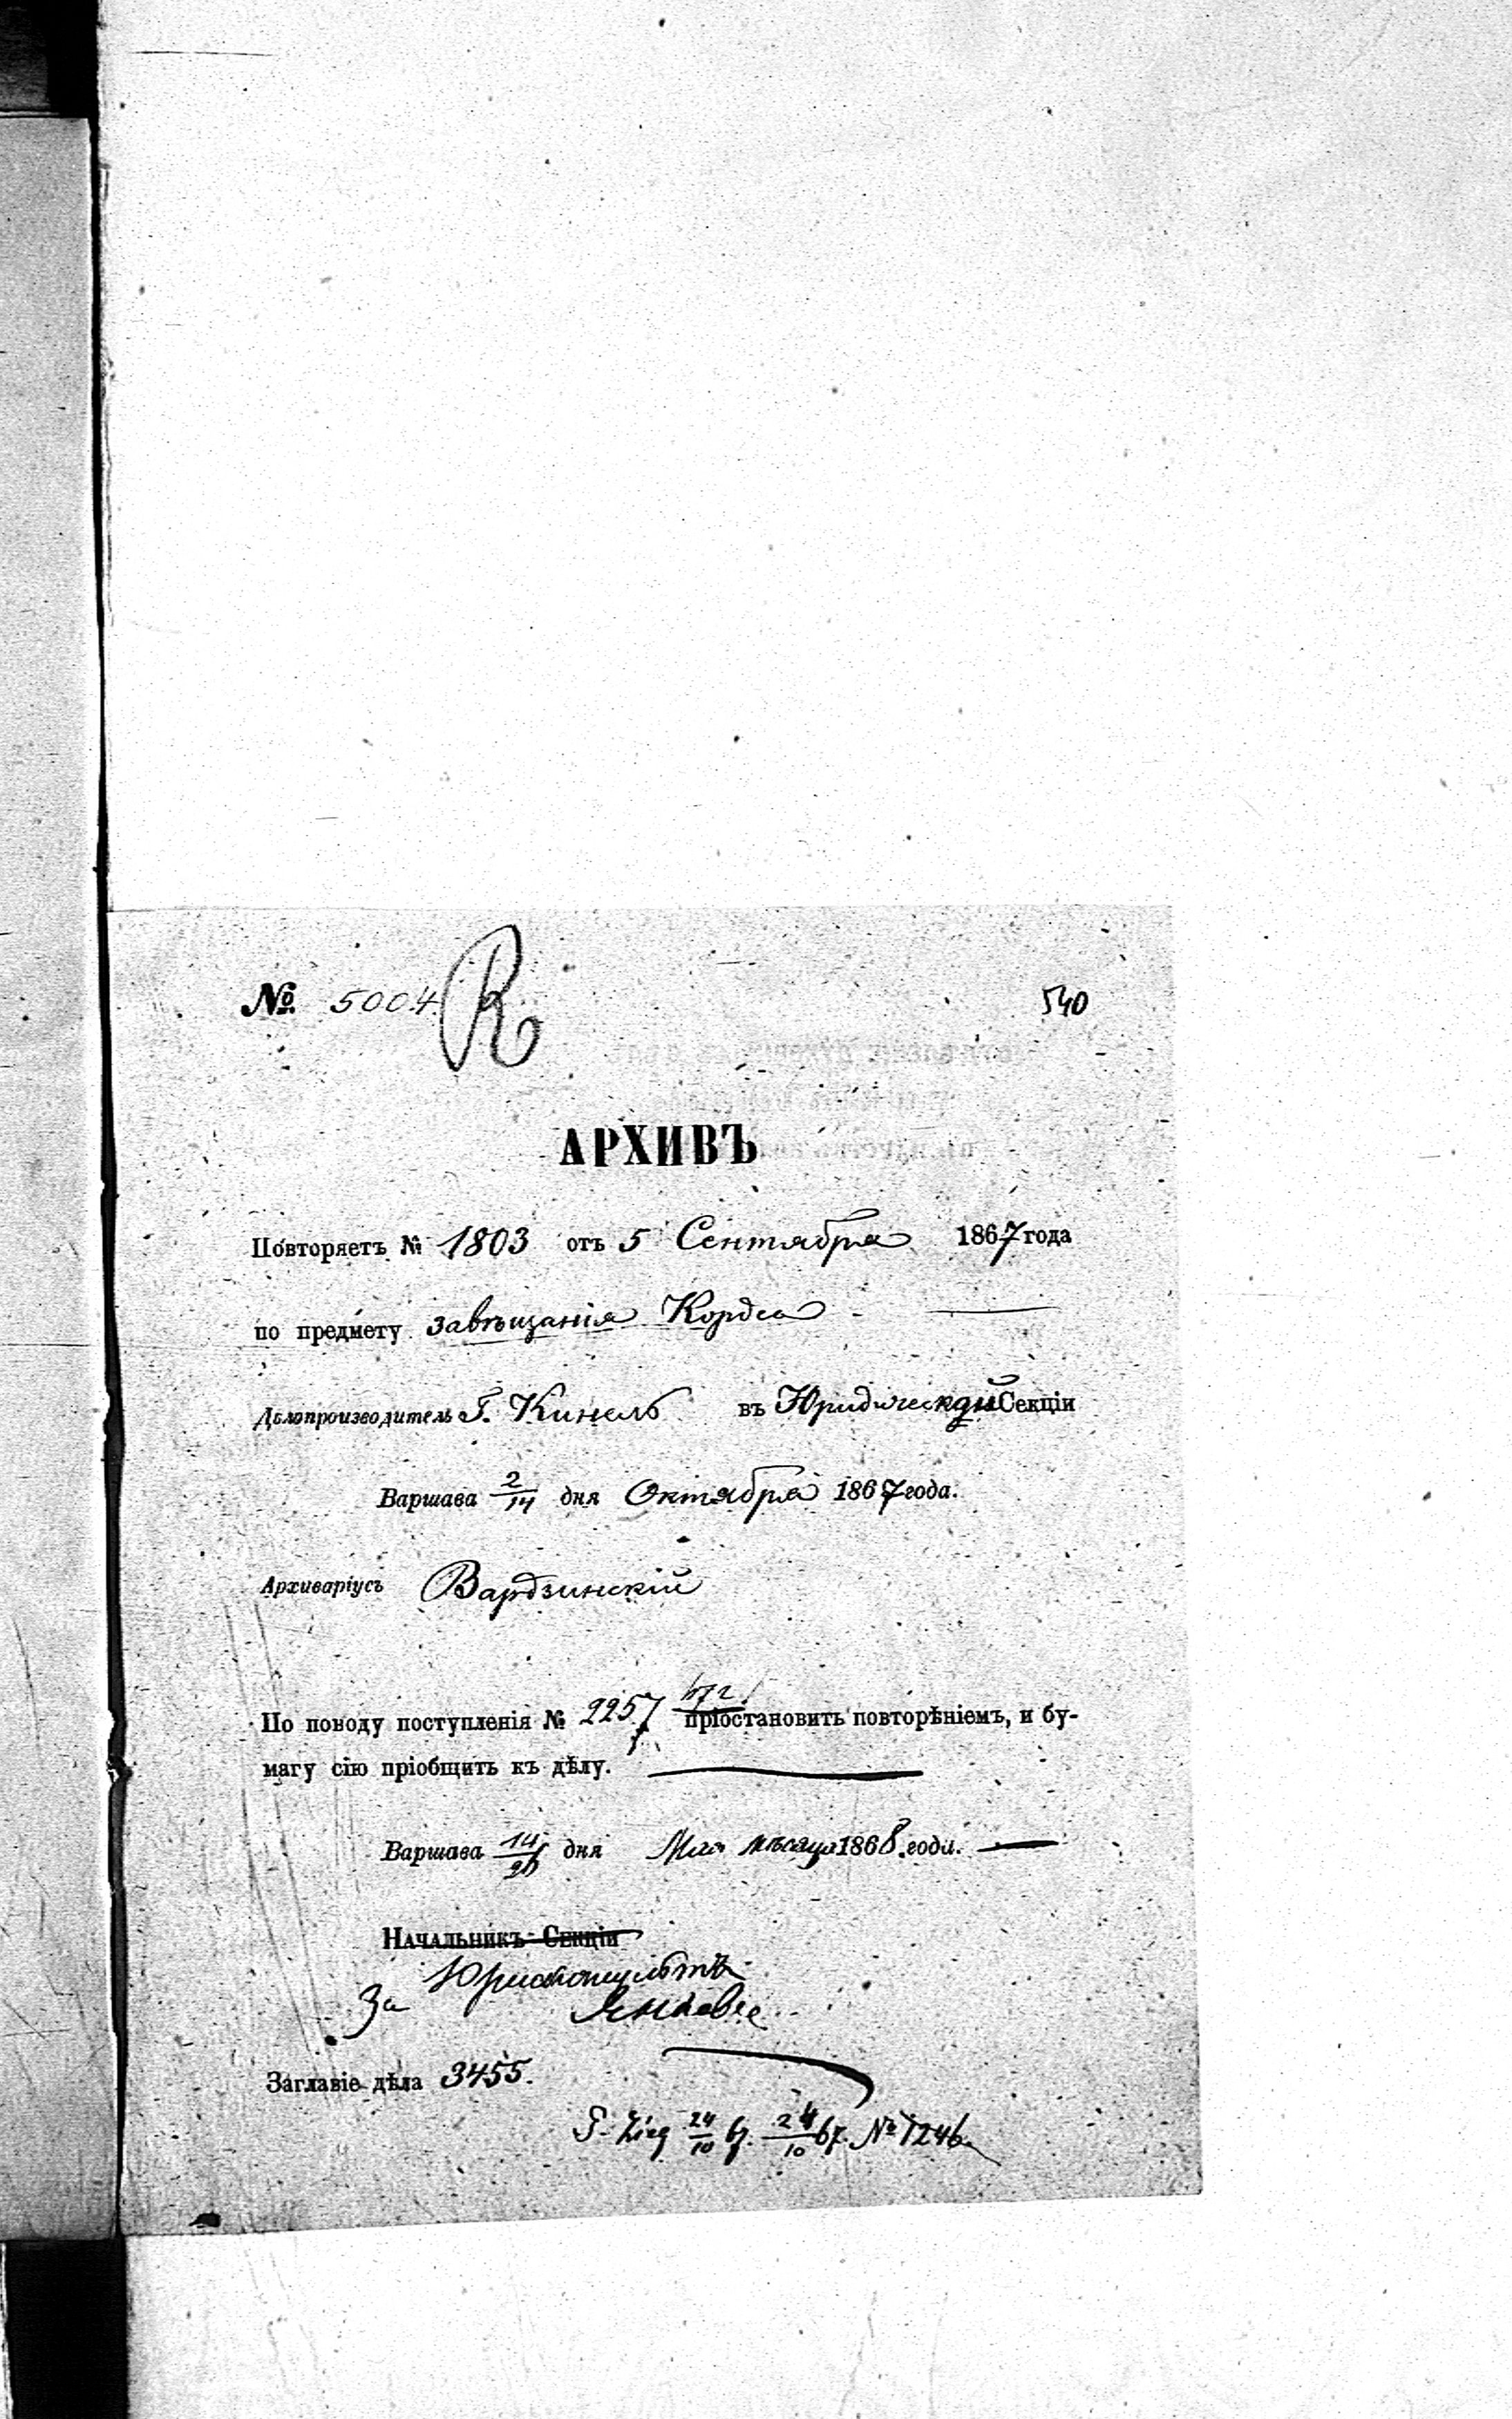 № 5004 R 540
АРХИВЪ
Повторяетъ № 1803 отъ 5 Сентября 1867 года
по предмету завѣщанія Кордса
Дѣлопроизводитель Г. Кинель въ Юридической Секціи
Варшава 2/14 дня Октября 1867 года.
Архиваріусъ Вардзинскій
По поводу поступленія № 2257 пріостановить повторѣніемъ, и бу-
магу сію пріобщить къ дѣлу.
Варшава 14/26 дня Мая мѣсяца 1868 года.
Начальникъ Секціи
Юрисконсультъ
За
Заглавіе дѣла 3455.
24/10 67. 24/10 67. №